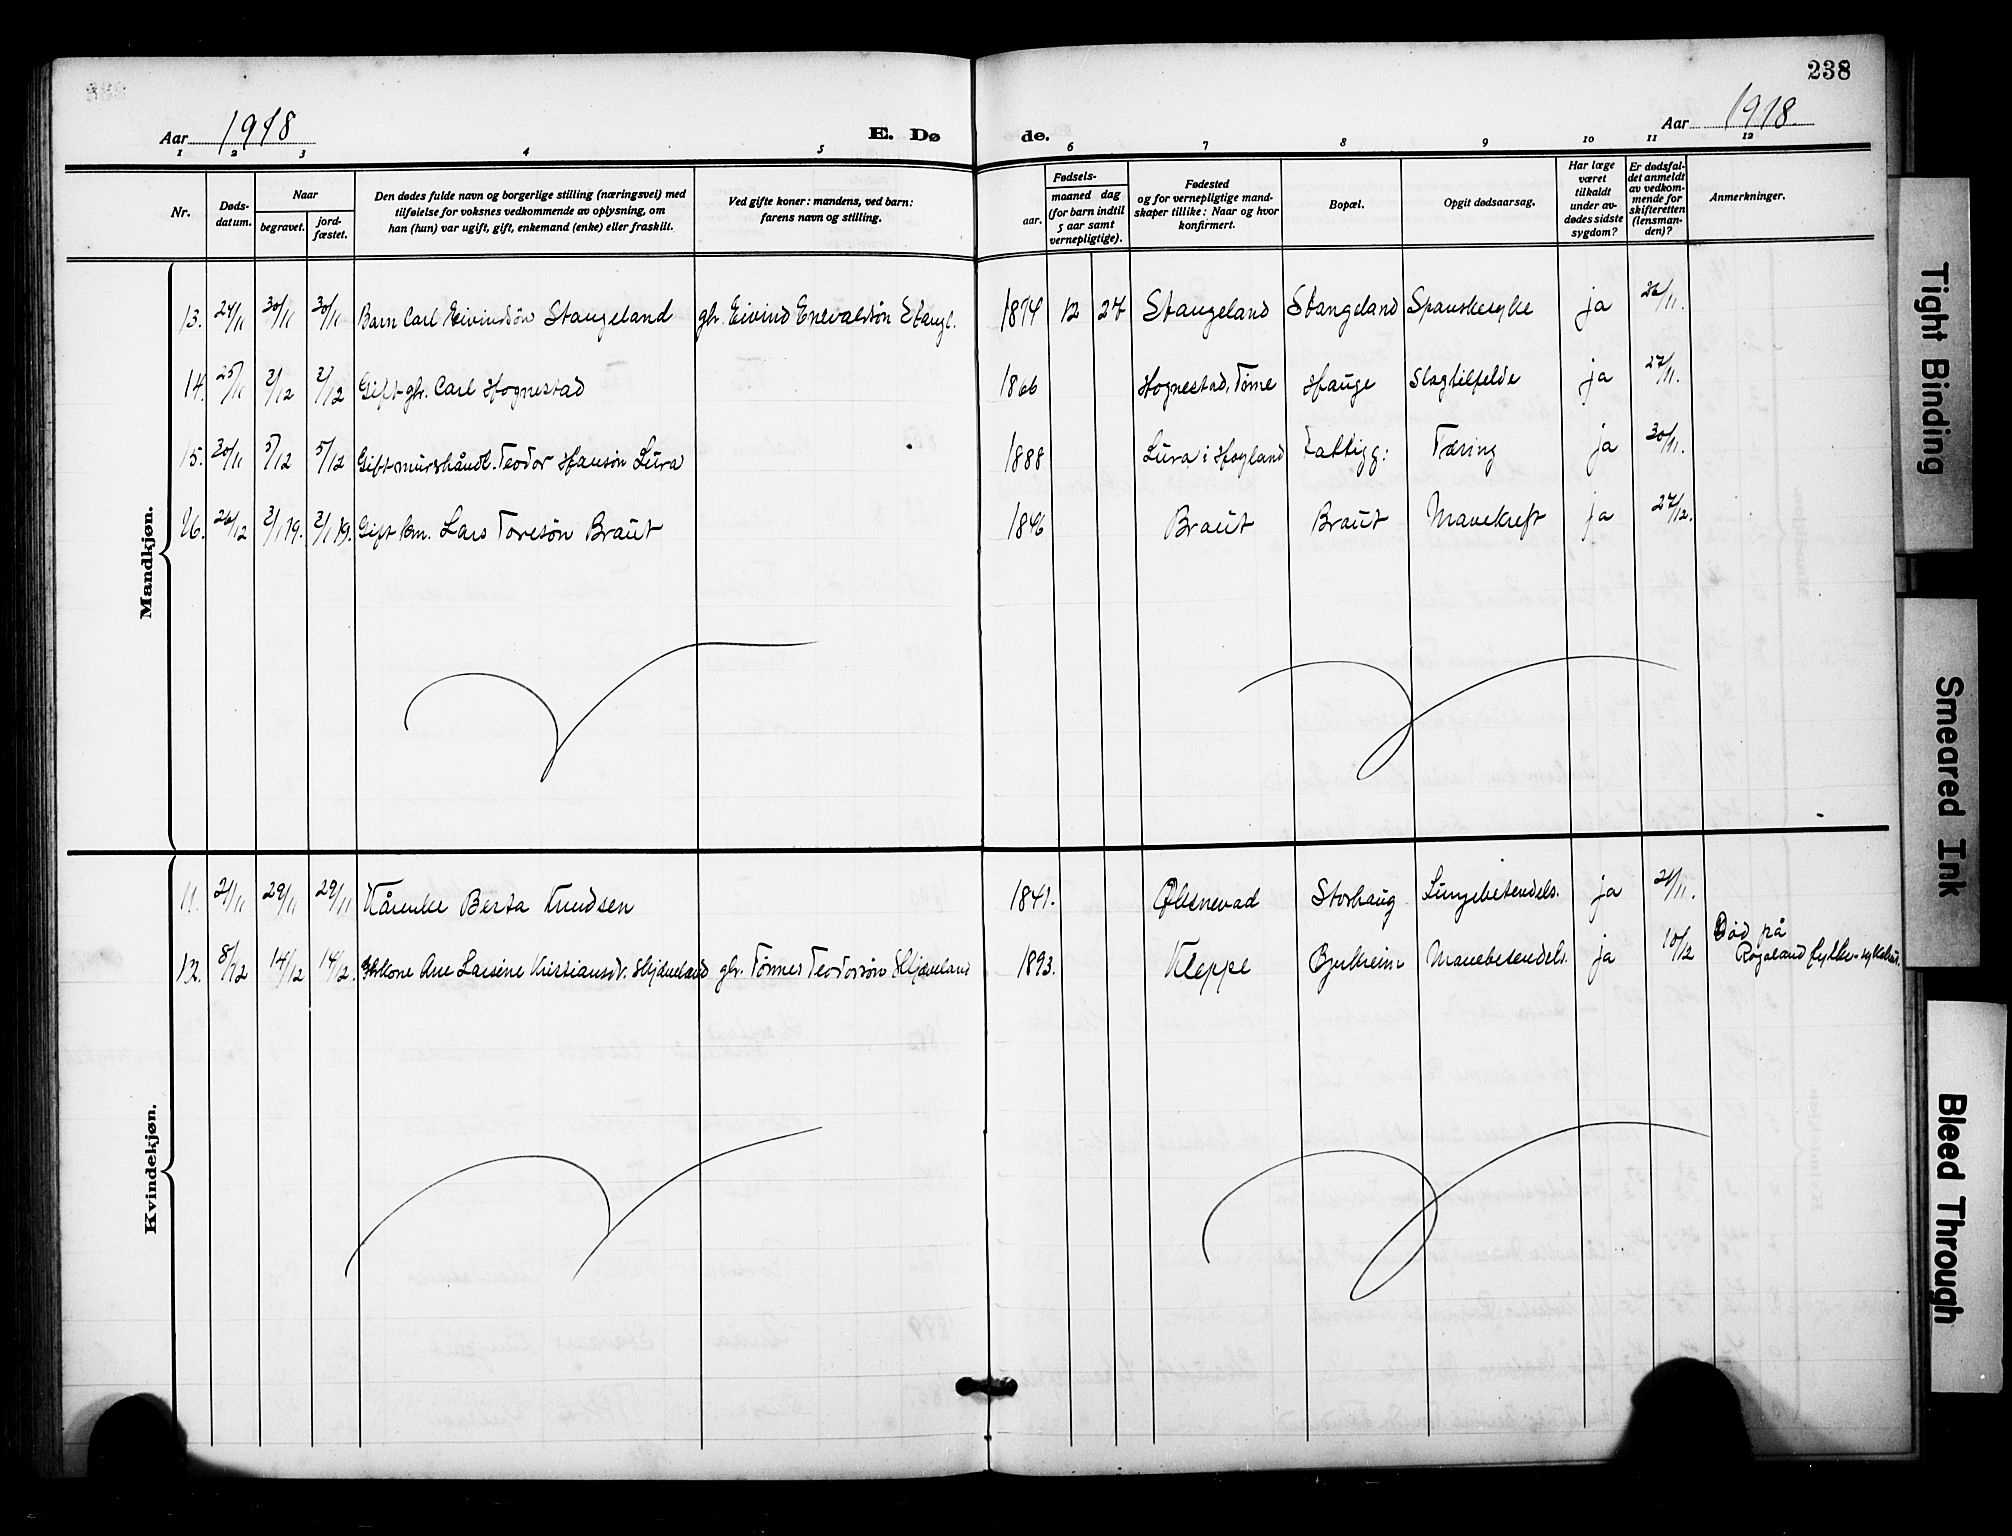 238
Aar 1918 E. Dø de. Aar 1918.
1 2 3 4 5 6 7 8 9 10 11 12
Nr.
Døds-
datum.
Naar
begravet.
jord-
fæstet.
Den dødes fulde navn og borgerlige stilling (næringsvei) med
tilføielse for voksnes vedkommende av oplysning, om
han (hun) var ugift, gift, enkemand (enke) eller fraskilt.
Ved gifte koner: mandens, ved barn:
farens navn og stilling.
Fødsels-
aar.
maaned dag
(for barn indtil
5 aar samt
vernepligtige).
Fødested
og for vernepligtige mand-
skaper tillike: Naar og hvor
konfirmert.
Bopæl.
Opgit dødsaarsag.
Har læge
været
tilkaldt
under av-
dødes sidste
sygdom?
Er dødsfal-
det anmeldt
av vedkom-
mende for
skifteretten
(lensman-
den)?
Anmerkninger.
Mandkjøn.
13. 24/11 30/11 30/11 Barn Carl Eivindsøn Stangeland gbr. Eivind Enevaldsøn Stangl. 12 27 Stangeland Stangeland Spanskesyke ja 26/11.
14. 25/11 2/12 2/12 Gift gbr. Carl Hognestad 1866 Hognestad, Time Hauge Slagtilfelde ja 27/11.
15. 30/11 5/12 5/12 Gift Teodor Hansøn Lura 1888 Lura i Høyland Fattigg: Tæring ja 30/11.
16. 26/12 2/1 19. 2/1 19. Gift Lars Toresøn Braut 1846 Braut Braut Mavekreft ja 27/12.
Kvindekjøn.
11. 21/11 29/11 29/11 Berta Knudsen 1841. Ølsnevad Storhaug Lungebetendels. ja 21/11.
12. 8/12 14/12 14/12. Gbrkone Ane Larsine Kristiansdr. Skjæveland gbr. Tønnes Teodorsøn Skjæveland 1893. Kleppe Bjelkeim Mavebetendels. ja 10/12 Død på
Rogaland fylkes-sykehus.
Tight Binding
Smeared Ink
Bleed Through